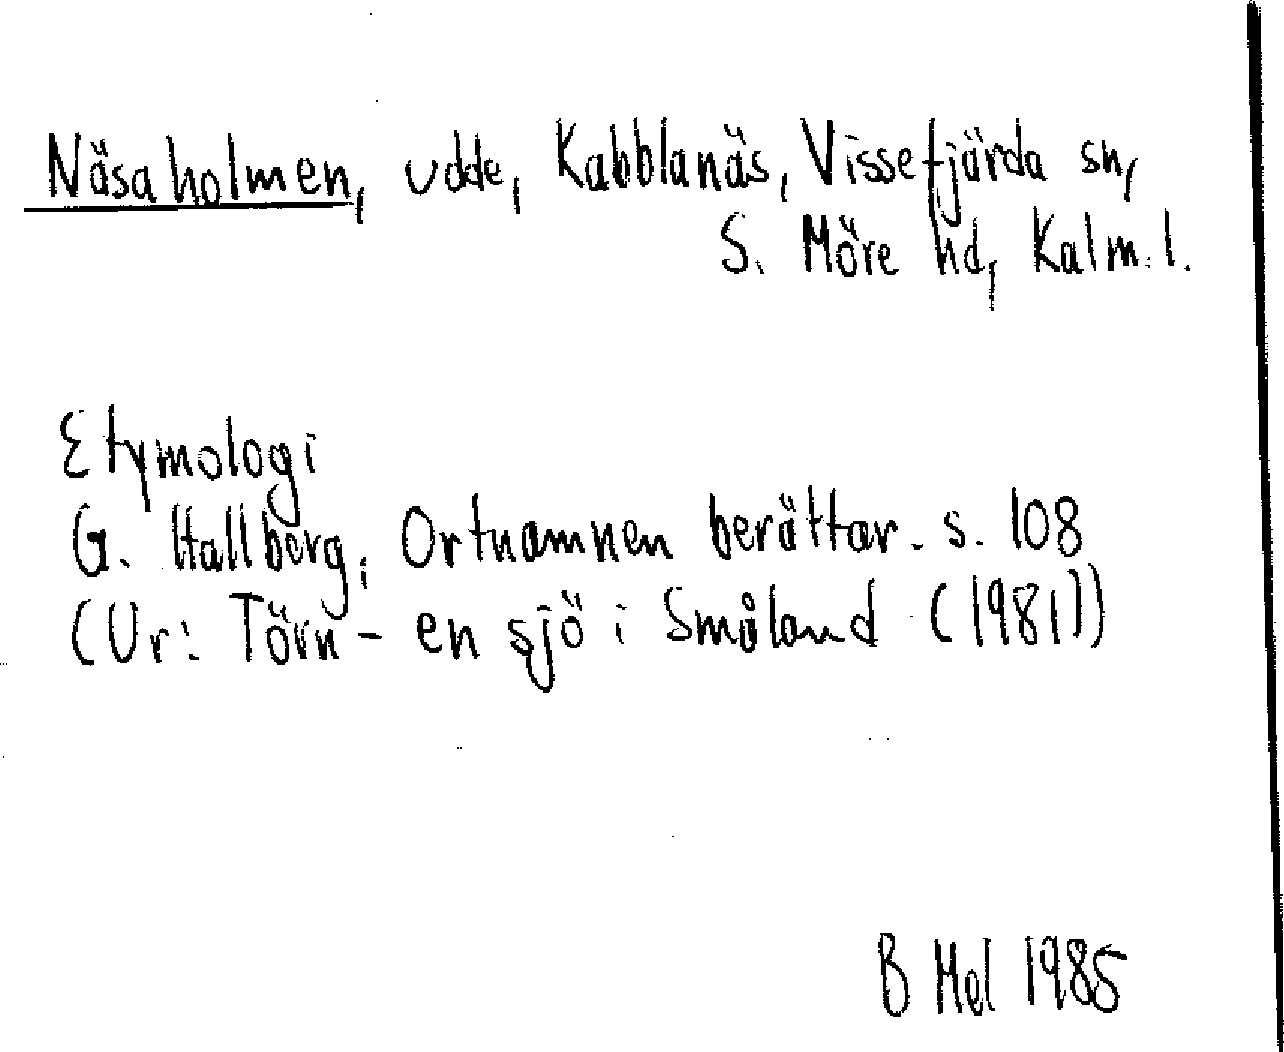 Näsaholmen, udde, Kabblanäs, Vissefjärda sn,
S. Möre hd, Kalm. l.
Etymologi
G. Hallberg, Ortnamnen berättar. s. 108
(Ur: Törn - en sjö i Småland (1981))
B Mel 1985